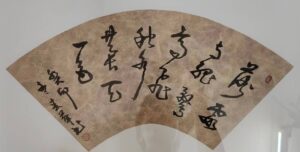 落霞
与孤鹜
齐飞
秋水
共长天
一色
癸卯